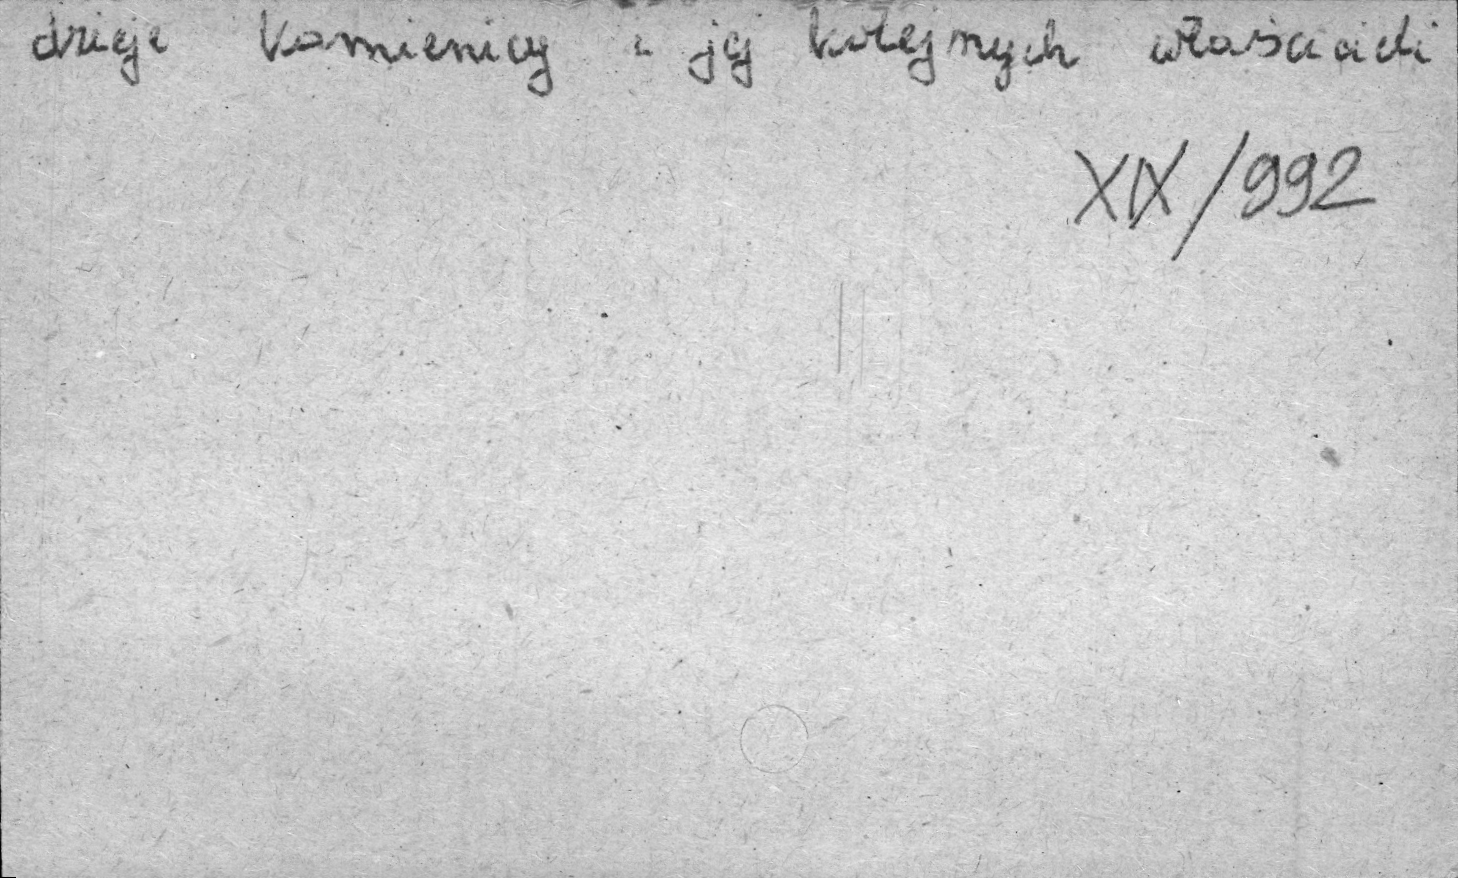 dzieje kamienicy i jej kolejnych właścicieli
XIX/992